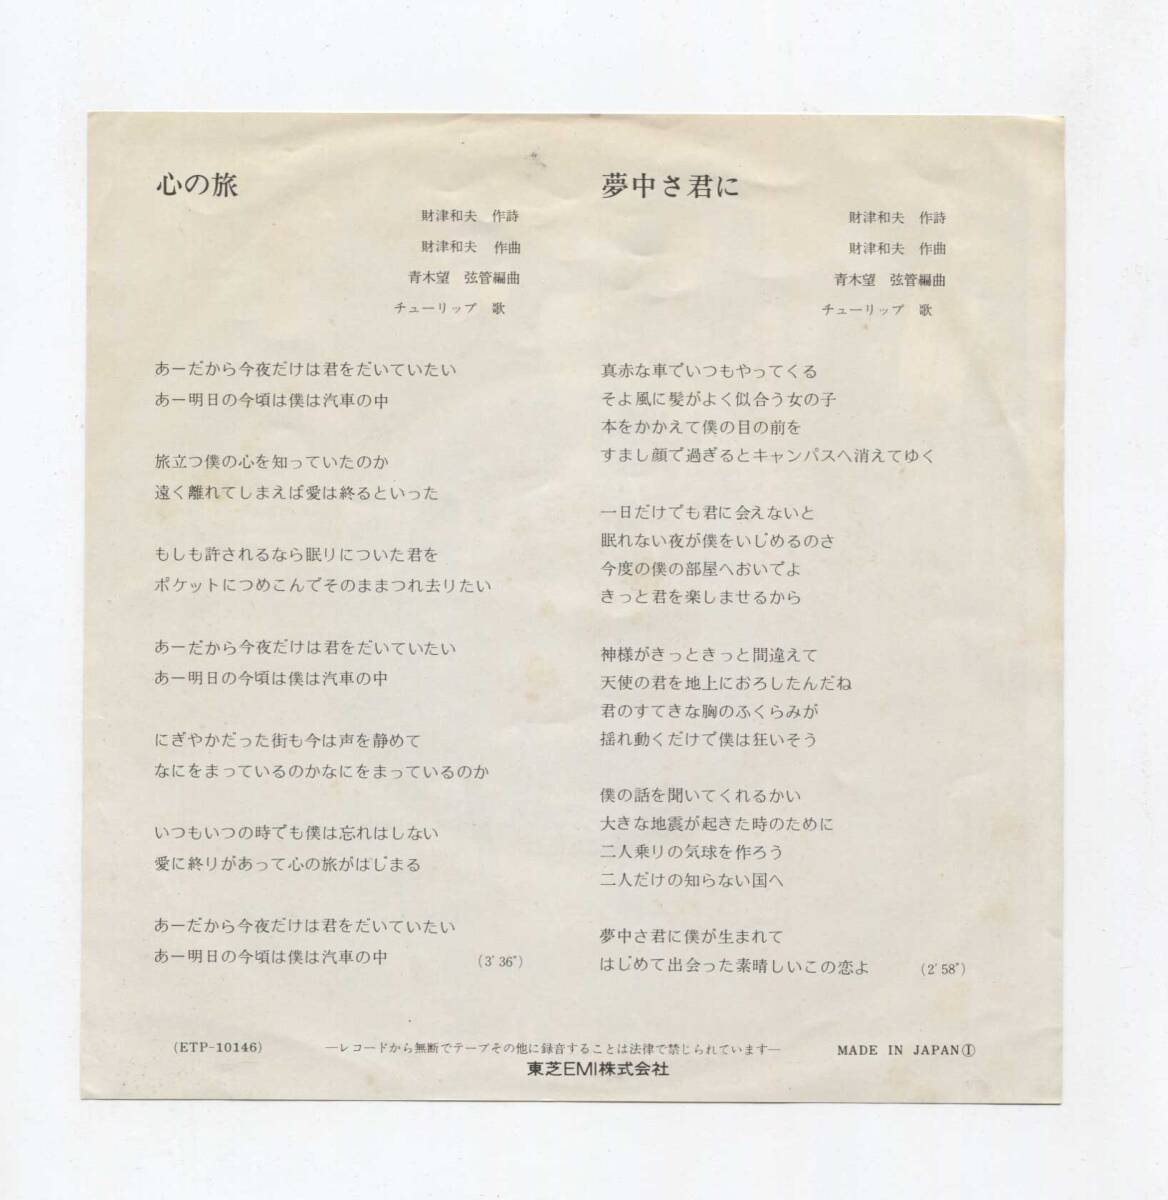 心の旅
財津和夫 作詩
財津和夫 作曲
青木望 弦管編曲
チューリップ 歌
あーだから今夜だけは君をだいていたい
あー明日の今頃は僕は汽車の中
旅立つ僕の心を知っていたのか
遠く離れてしまえば愛は終るといった
もしも許されるなら眠りについた君を
ポケットにつめこんでそのままつれ去りたい
あーだから今夜だけは君をだいていたい
あー明日の今頃は僕は汽車の中
にぎやかだった街も今は声を静めて
なにをまっているのかなにをまっているのか
いつもいつの時でも僕は忘れはしない
愛に終りがあって心の旅がはじまる
あーだから今夜だけは君をだいていたい
あー明日の今頃は僕は汽車の中 (3'36")
夢中さ君に
財津和夫 作詩
財津和夫 作曲
青木望 弦管編曲
チューリップ 歌
真赤な車でいつもやってくる
そよ風に髪がよく似合う女の子
本をかかえて僕の目の前を
すまし顔で過ぎるとキャンパスへ消えてゆく
一日だけでも君に会えないと
眠れない夜が僕をいじめるのさ
今度の僕の部屋へおいでよ
きっと君を楽しませるから
神様がきっときっと間違えて
天使の君を地上におろしたんだね
君のすてきな胸のふくらみが
揺れ動くだけで僕は狂いそう
僕の話を聞いてくれるかい
大きな地震が起きた時のために
二人乗りの気球を作ろう
二人だけの知らない国へ
夢中さ君に僕が生まれて
はじめて出会った素晴しいこの恋よ (2'58")
(ETP-10146) —レコードから無断でテープその他に録音することは法律で禁じられています— MADE IN JAPAN Ⓘ
東芝EMI株式会社